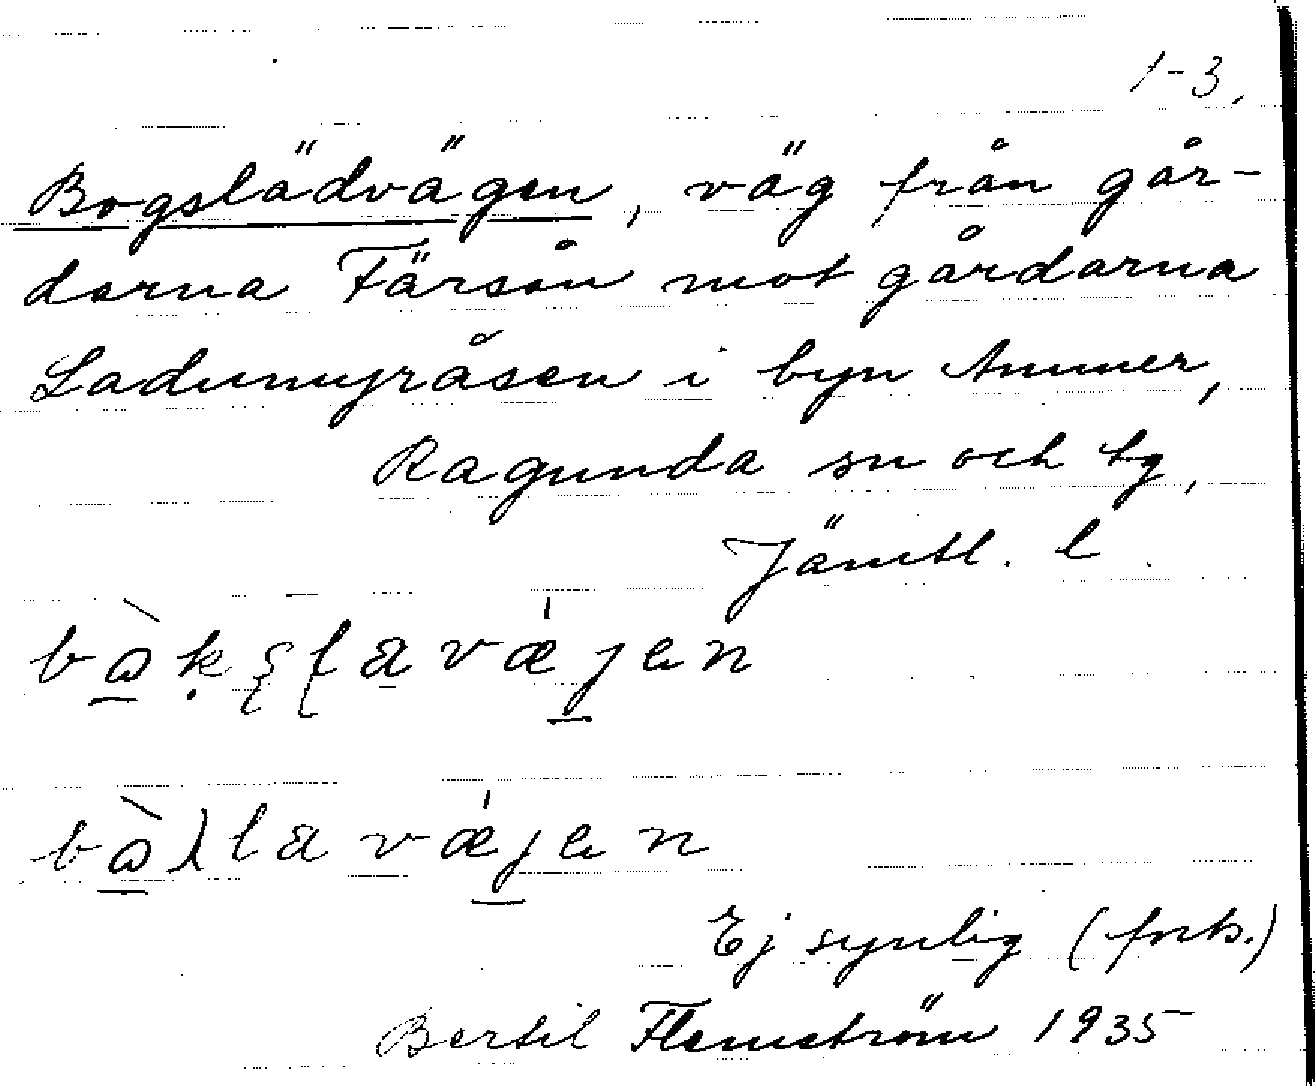 1-3,
Bogslädvägen, väg från går-
darna Färsån mot gårdarna
Ladumyråsen i byn Ammer,
Ragunda sn och tg,
Jämtl. l.
Ej synlig (forts.)
Bertil Flemström 1935